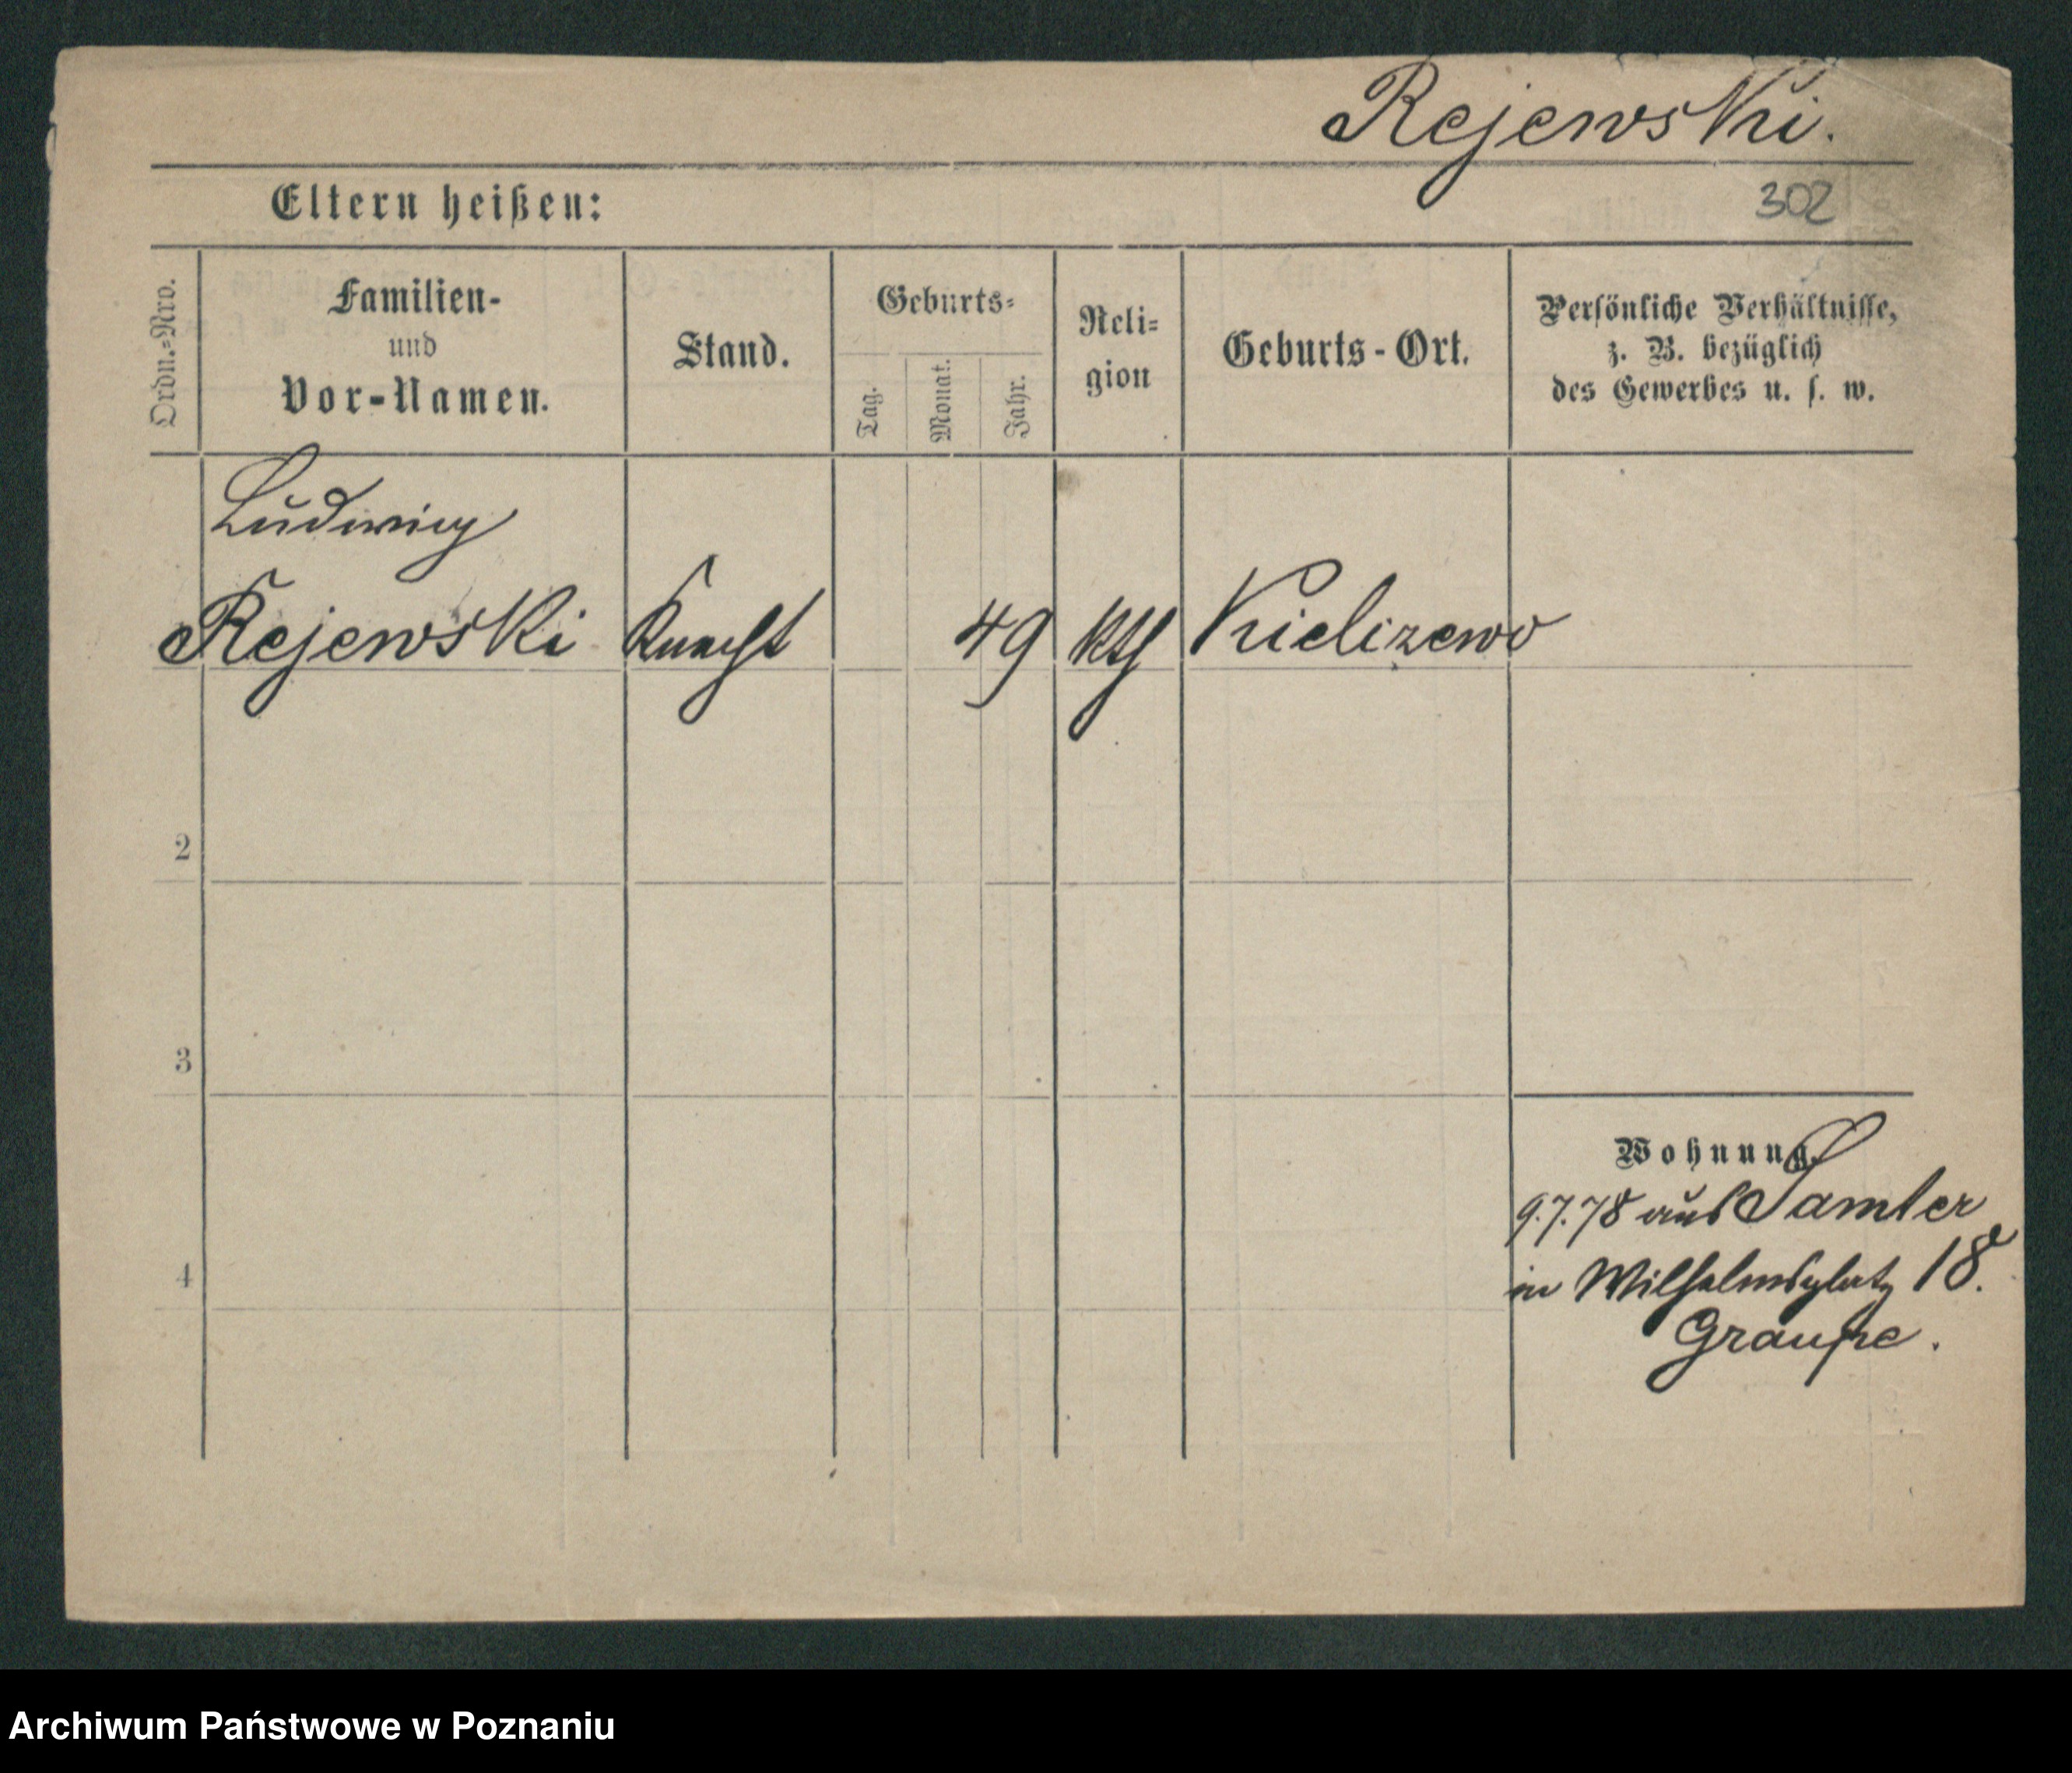 Rejewski.
Eltern heißen:
302
Ordn.-Nro.
Familien-
und
Vor-Namen.
Stand.
Geburts-
Tag.
Monat.
Jahr.
Reli-
gion
Geburts-Ort.
Persönliche Verhältnisse,
z. B. bezüglich
des Gewerbes u. s. w.
Ludwig
Rejewski Knecht 49 kth Kielizewo
2
3
Wohnung.
9.7.78 aus Samter
4
in Wilhelmsplatz 18.
Graupe.
Archiwum Państwowe w Poznaniu